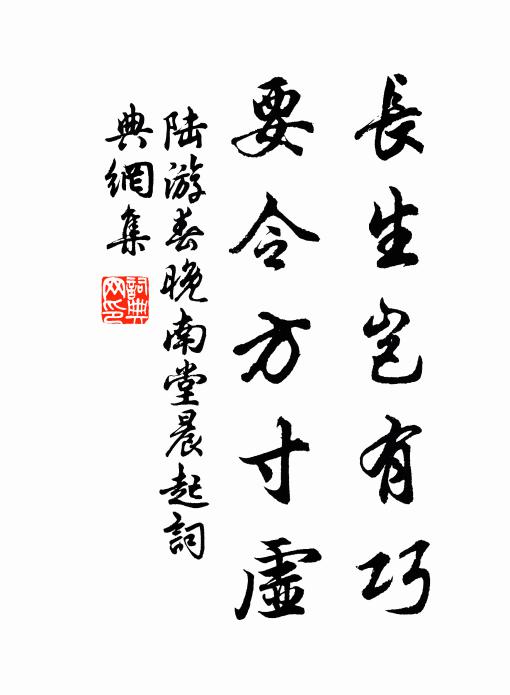 長生岂有巧
要令方寸虛
陆游春晚南堂晨起詞
典網集
詞典
网印